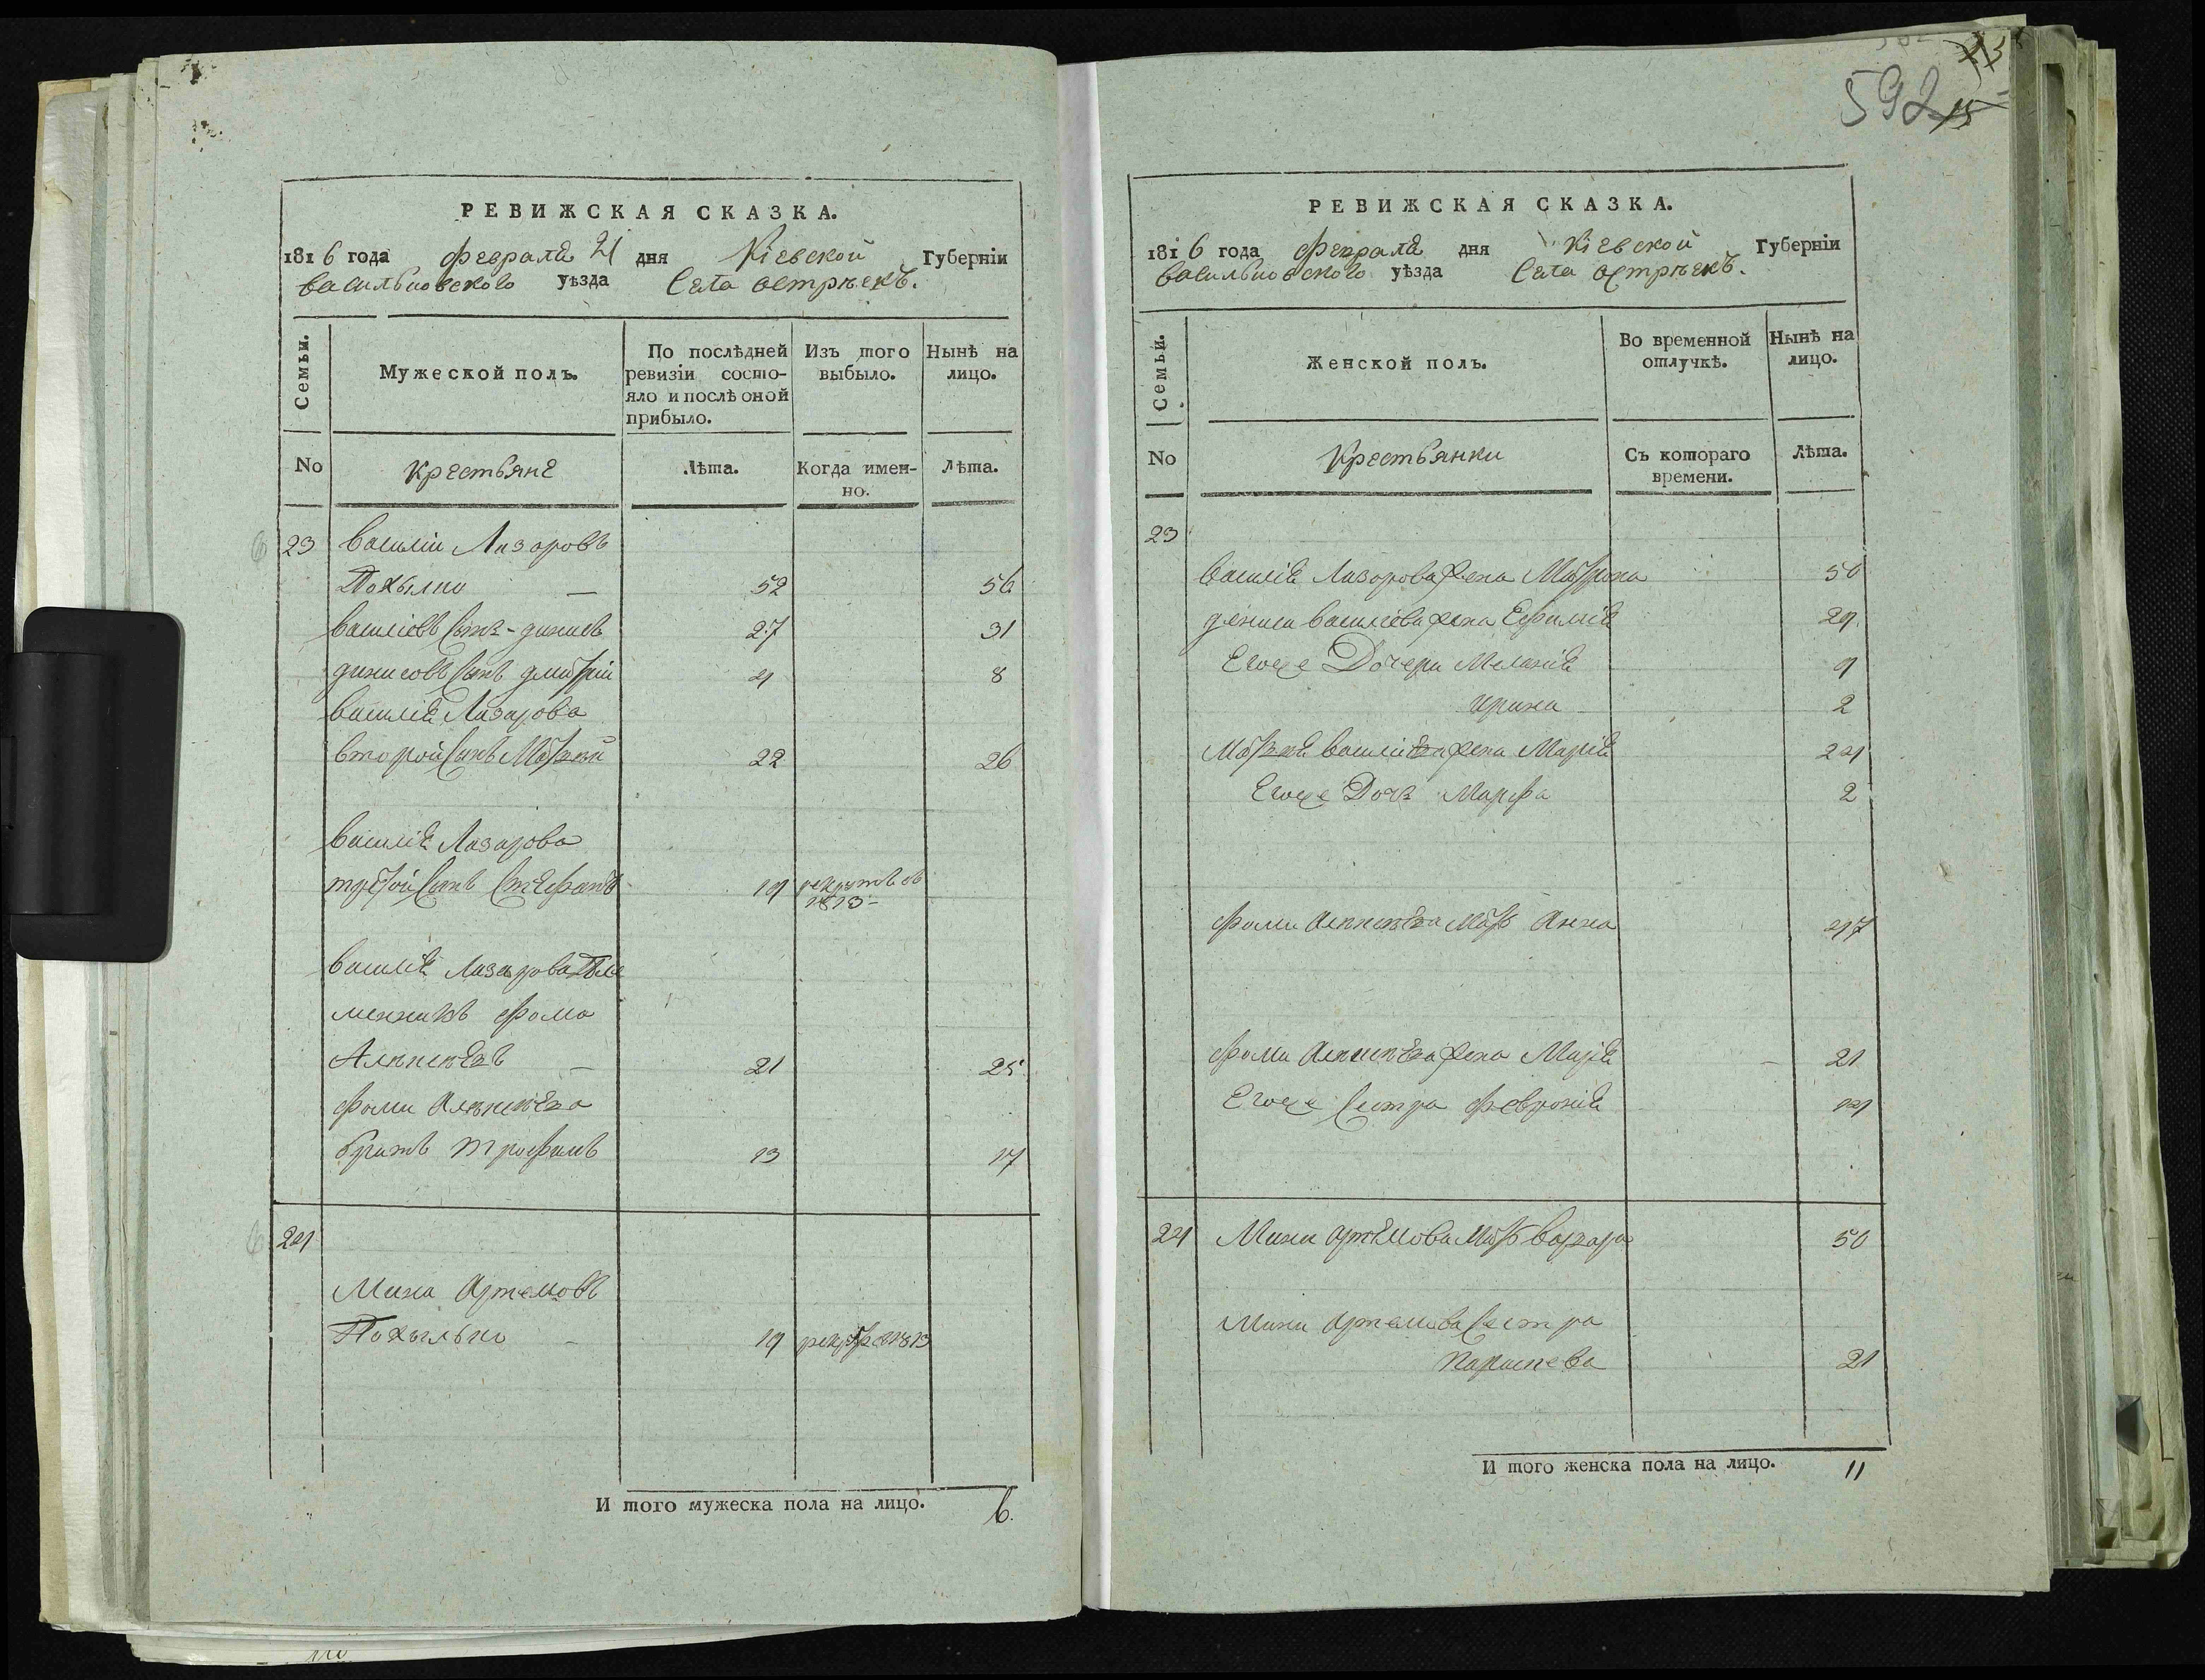 РЕВИЖСКАЯ СКАЗКА.
1816 года февраля 21 дня Кіевской Губерніи
васильковского уѣзда Села острѣекъ.
Семьи.
Мужеской полъ.
По послѣдней ревизіи состояло и послѣ оной прибыло.
Изъ того выбыло.
Нынѣ на лицо.
No
крестьяне
Лѣта.
Когда именно.
Лѣта.
23 василіи Лазоровъ
Похилко — 52 56
василіовъ сынъ - денисъ 27 31
денисовъ сынъ дмитрій 4 8
василія Лазарова
второй сынъ 22 26
василія Лазарова
третой сынъ Стефанъ 19 1813 -
василія Лазарова пле
менникъ фома
21 25
фомы
братъ трофимъ 13 17
24
Мина Артемовъ
Похилько - 19 1813
И того мужеска пола на лицо. 6.
592
15
РЕВИЖСКАЯ СКАЗКА.
1816 года февраля дня Кіевской Губерніи
васильковского уѣзда Села острѣекъ.
Семьи.
Женской полъ.
Во временной отлучкѣ.
Нынѣ на лицо.
No
Крестьянки
Съ котораго времени.
Лѣта.
23
василія Лазорова жена Мотрона 50
дениса василіева жена Ефимія 29
Егоже Дочери Меланія 9
ирина 2
василіева жена Марія 24
Егоже Дочь Марфа 2
фомы мать Анна 47
фомы жена Марія 21
Егоже Сестра февронія 14
24 Мины артемова мать варвара 50
Мины артемова Сестра
Параскева 21
И того женска пола на лицо. 11